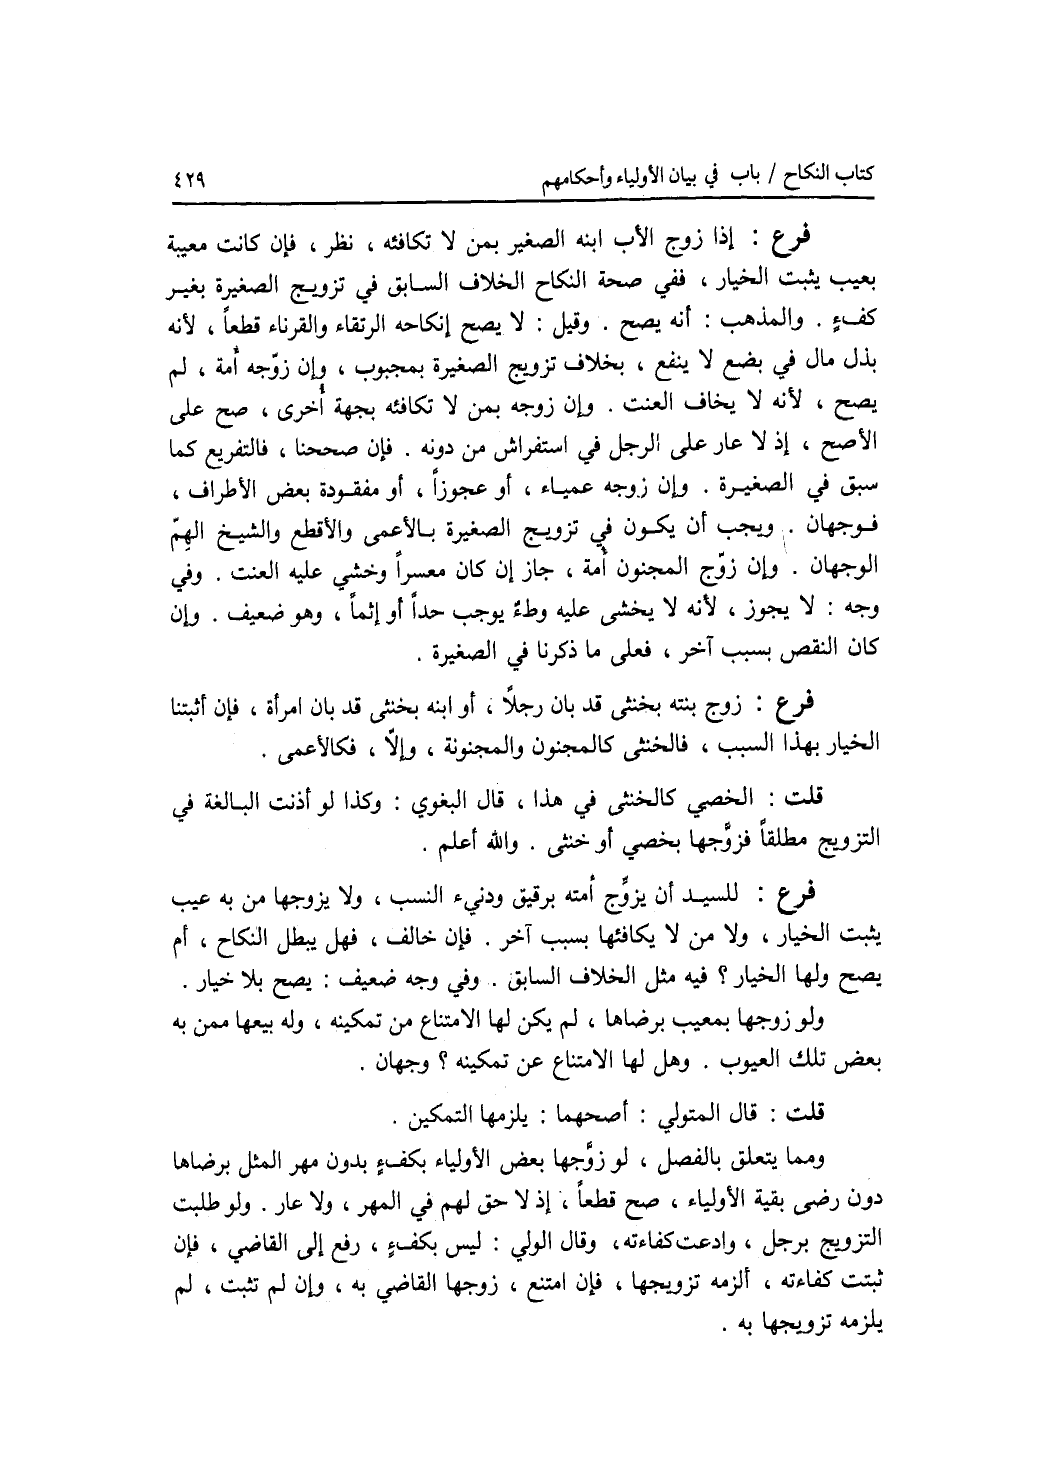 كتاب النكاح / باب في بيان الأولياء وأحكامهم ٤٢٩
فرع : إذا زوج الأب ابنه الصغير بمن لا تكافئه ، نظر ، فإن كانت معيبة
بعيب يثبت الخيار ، ففي صحة النكاح الخلاف السابق في تزويج الصغيرة بغير
كفءٍ . والمذهب : أنه يصح . وقيل : لا يصح إنكاحه الرتقاء والقرناء قطعاً ، لأنه
بذل مال في بضع لا ينفع ، بخلاف تزويج الصغيرة بمجبوب ، وإن زوّجه أمة ، لم
يصح ، لأنه لا يخاف العنت . وإن زوجه بمن لا تكافئه بجهة أُخرى ، صح على
الأصح ، إذ لا عار على الرجل في استفراش من دونه . فإن صححنا ، فالتفريع كما
سبق في الصغيرة . وإن زوجه عمياء ، أو عجوزاً ، أو مفقودة بعض الأطراف ،
فوجهان . ويجب أن يكون في تزويج الصغيرة بالأعمى والأقطع والشيخ الهِمّ
الوجهان . وإن زوّج المجنون أمة ، جاز إن كان معسراً وخشي عليه العنت . وفي
وجه : لا يجوز ، لأنه لا يخشى عليه وطءٌ يوجب حداً أو إثماً ، وهو ضعيف . وإن
كان النقص بسبب آخر ، فعلى ما ذكرنا في الصغيرة .
فرع : زوج بنته بخنثى قد بان رجلاً ، أو ابنه بخنثى قد بان امرأة ، فإن أثبتنا
الخيار بهذا السبب ، فالخنثى كالمجنون والمجنونة ، وإلّا ، فكالأعمى .
قلت : الخصي كالخنثى في هذا ، قال البغوي : وكذا لو أذنت البالغة في
التزويج مطلقاً فزوَّجها بخصي أو خنثى . والله أعلم .
فرع : للسيد أن يزوِّج أمته برقيق ودنيء النسب ، ولا يزوجها من به عيب
يثبت الخيار ، ولا من لا يكافئها بسبب آخر . فإن خالف ، فهل يبطل النكاح ، أم
يصح ولها الخيار ؟ فيه مثل الخلاف السابق . وفي وجه ضعيف : يصح بلا خيار .
ولو زوجها بمعيب برضاها ، لم يكن لها الامتناع من تمكينه ، وله بيعها ممن به
بعض تلك العيوب . وهل لها الامتناع عن تمكينه ؟ وجهان .
قلت : قال المتولي : أصحهما : يلزمها التمكين .
ومما يتعلق بالفصل ، لو زوَّجها بعض الأولياء بكفءٍ بدون مهر المثل برضاها
دون رضى بقية الأولياء ، صح قطعاً ، إذ لا حق لهم في المهر ، ولا عار . ولو طلبت
التزويج برجل ، وادعت كفاءته، وقال الولي : ليس بكفءٍ ، رفع إلى القاضي ، فإن
ثبتت كفاءته ، ألزمه تزويجها ، فإن امتنع ، زوجها القاضي به ، وإن لم تثبت ، لم
يلزمه تزويجها به .